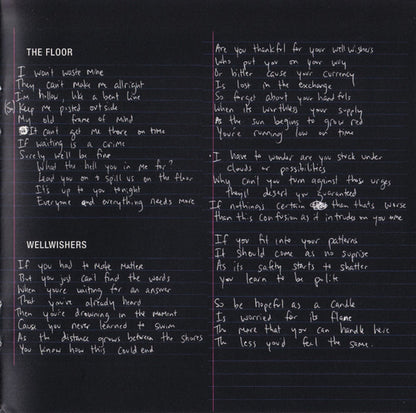 THE FLOOR
I wont waste mine
They cant make me allright
Im hollow, like a bent line
(So) Keep me posted outside
My old frame of mind
It cant get me there on time
If waiting is a crime
Surely we'll be fine
What the hell you in me for?
Lead you on & spill us on the floor
It's up to you tonight
Everyone and everything needs more
WELLWISHERS
If you had to make matter
But you just can't find the words
When you're waiting for an answer
That you've already heard
Then you're drowning in the moment
Cause you never learned to swim
As the distance grows between the shores
You know how this could end
Are you thankful for your wellwishers
Who put you on your way
Or bitter cause your currency
Is lost in the exchange
So forget about your handfuls
When its worthless your supply
As the sun begins to grow red
You're running low on time
I have to wonder are you stuck under
clouds or possibilities
Why can't you turn against those urges
they'll desert you guaranteed
If nothingss certain than that's worse
than this confusion as it intrudes on you one
If you fit into your patterns
It should come as no suprise
As its safety starts to shatter
you learn to be polite
So be hopeful as a candle
Is worried for its flame
The more that you can handle here
The less you'd feel the same.